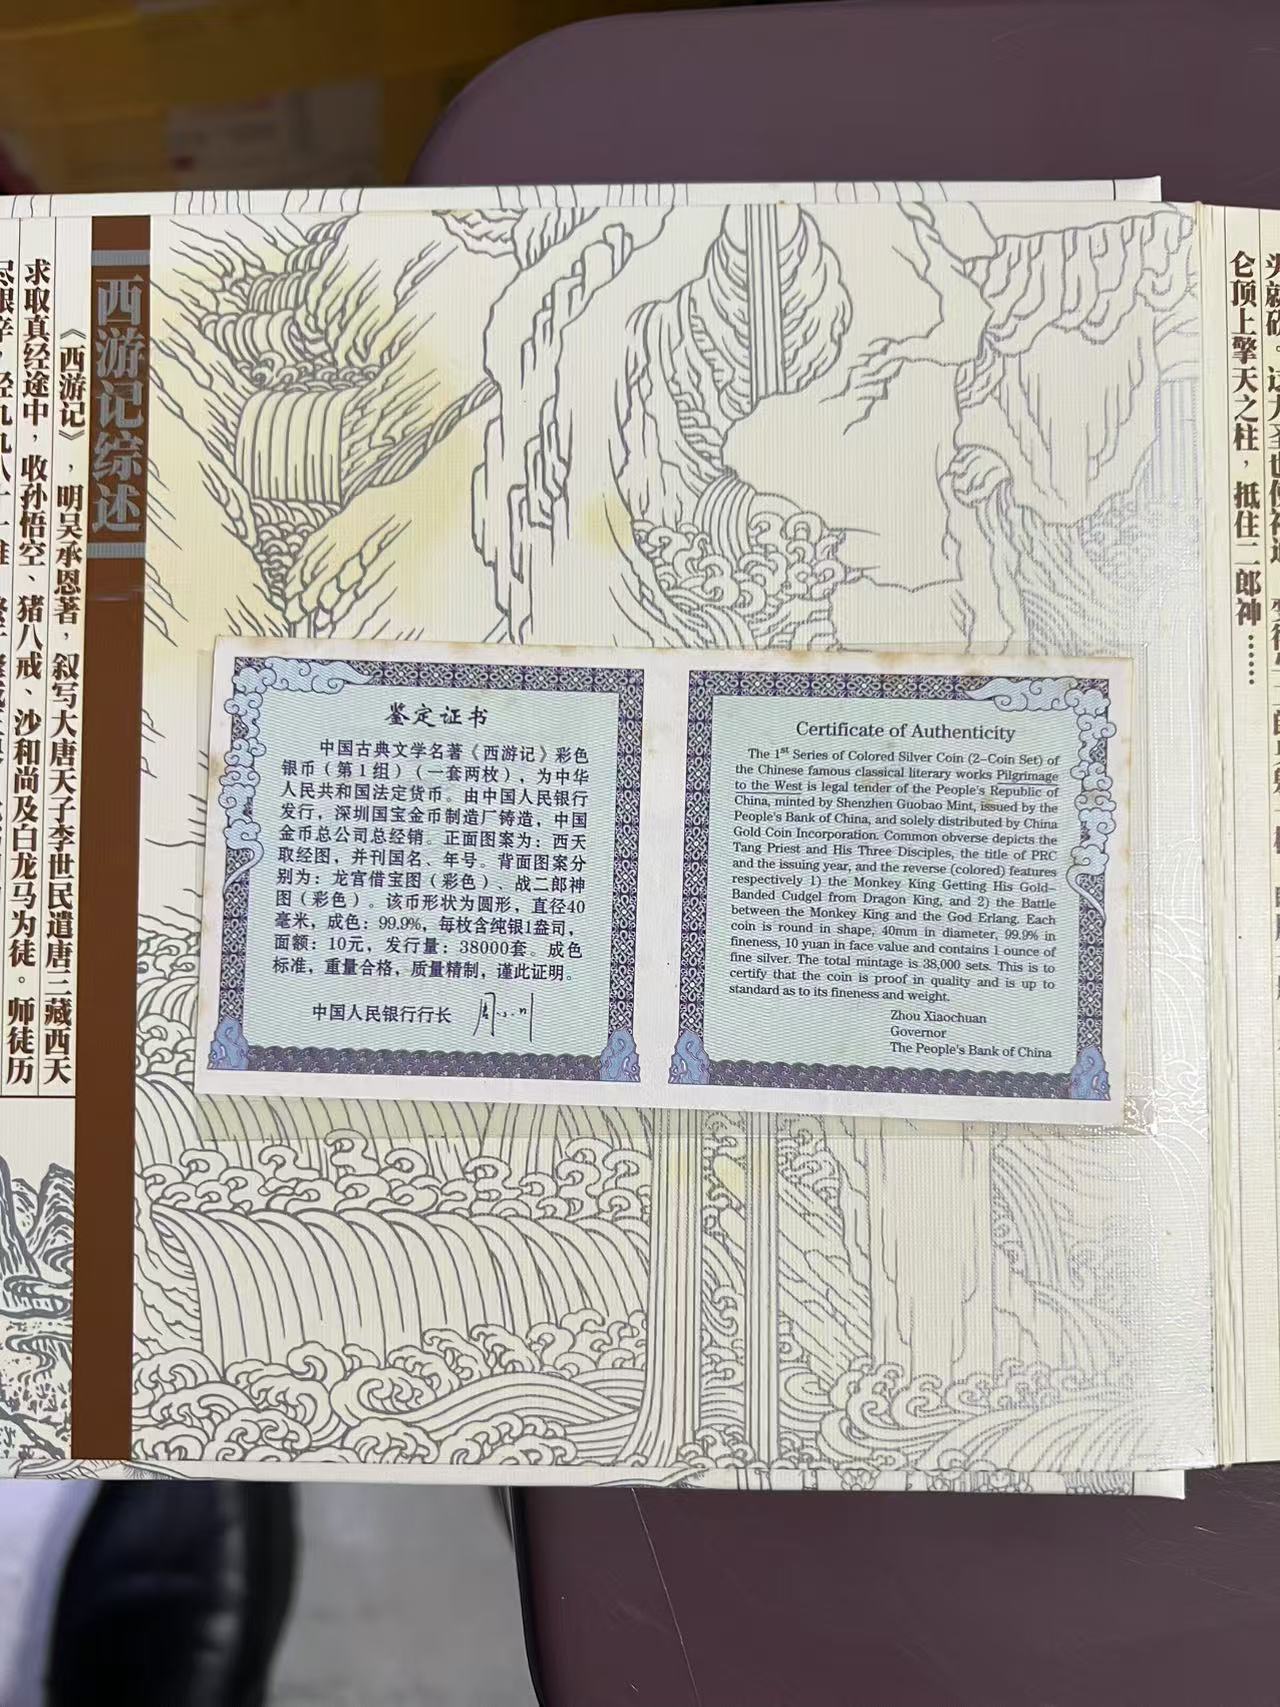 西游记综述
《西游记》，明吴承恩著，叙写大唐天子李世民遣唐三藏西天
求取真经途中，收孙悟空、猪八戒、沙和尚及白龙马为徒。师徒历
鉴定证书
中国古典文学名著《西游记》彩色
银币（第1组）（一套两枚），为中华
人民共和国法定货币。由中国人民银行
发行，深圳国宝金币制造厂铸造，中国
金币总公司总经销。正面图案为：西天
取经图，并刊国名、年号。背面图案分
别为：龙宫借宝图（彩色）、战二郎神
图（彩色）。该币形状为圆形，直径40
毫米，成色：99.9%，每枚含纯银1盎司，
面额：10元，发行量：38000套。成色
标准，重量合格，质量精制，谨此证明。
中国人民银行行长
Certificate of Authenticity
The 1st Series of Colored Silver Coin (2-Coin Set) of
the Chinese famous classical literary works Pilgrimage
to the West is legal tender of the People's Republic of
China, minted by Shenzhen Guobao Mint, issued by the
People's Bank of China, and solely distributed by China
Gold Coin Incorporation. Common obverse depicts the
Tang Priest and His Three Disciples, the title of PRC
and the issuing year, and the reverse (colored) features
respectively 1) the Monkey King Getting His Gold-
Banded Cudgel from Dragon King, and 2) the Battle
between the Monkey King and the God Erlang. Each
coin is round in shape, 40mm in diameter, 99.9% in
fineness, 10 yuan in face value and contains 1 ounce of
fine silver. The total mintage is 38,000 sets. This is to
certify that the coin is proof in quality and is up to
standard as to its fineness and weight.
Zhou Xiaochuan
Governor
The People's Bank of China
仑顶上擎天之柱，抵住二郎神……